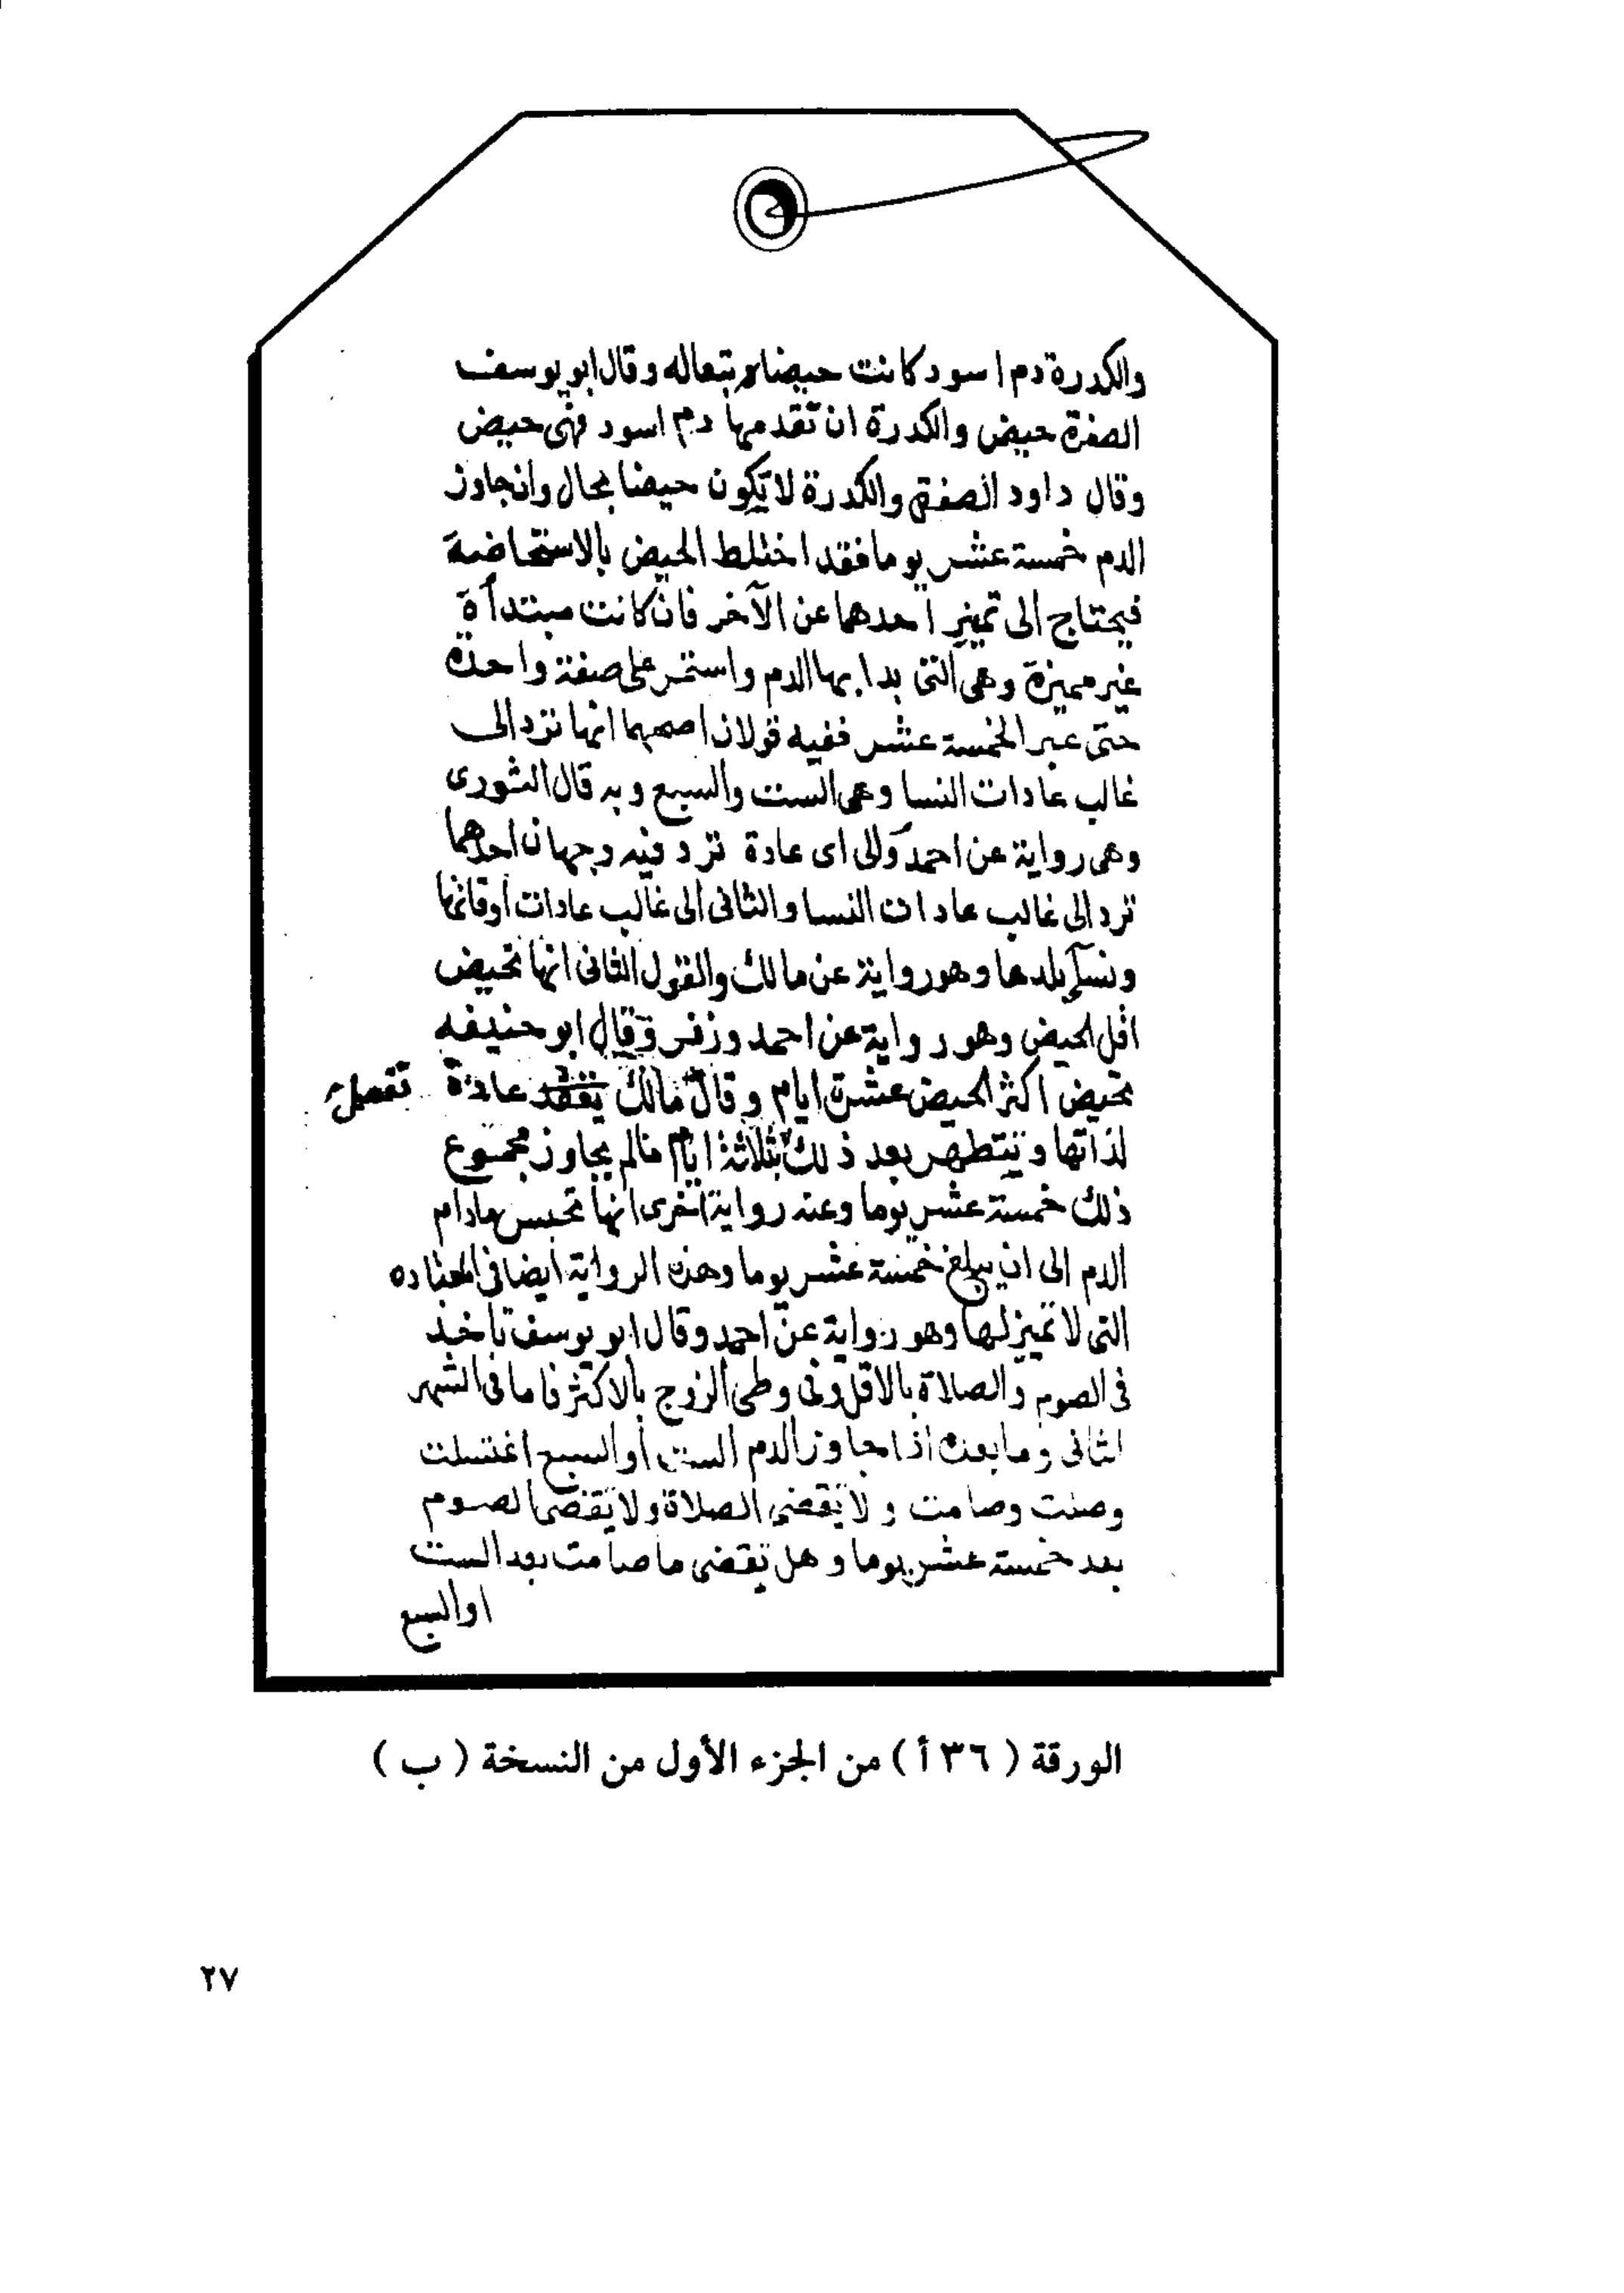 والكدرة دم اسود كانت حيضا تبعا له وقال ابو يوسف
الصفرة حيض والكدرة ان تقدمها دم اسود فهى حيض
وقال داود الصفرة والكدرة لا تكون حيضا بحال وان جاوز
الدم خمسة عشر يوما فقد اختلط الحيض بالاستحاضة
فيحتاج الى تمييز احدهما عن الآخر فان كانت مبتدأة
غير مميزة وهى التى بدا بها الدم واستمر على صفة واحدة
حتى عبر الخمسة عشر ففيه قولان اصحهما انها ترد الى
غالب عادات النسا وهى الست والسبع وبه قال الثورى
وهى رواية عن احمد والى اى عادة ترد فيه وجهان احدهما
ترد الى غالب عادات النسا والثانى الى غالب عادات
ونسآء بلدها وهو رواية عن مالك والقول الثانى انها تحيض
اقل الحيض وهو رواية عن احمد وزفر وقال ابو حنيفه
تحيض اكثر الحيض عشرة ايام وقال مالك تقعد عادة
لذاتها وتتطهر بعد ذلك بثلاثة ايام مالم يجاوز مجموع
ذلك خمسة عشر يوما وعنه رواية اخرى انها تحبس مادام
الدم الى ان يبلغ خمسة عشر يوما وهذه الرواية ايضا فى المعتاده
التى لا تمييز لها وهو رواية عن احمد وقال ابو يوسف تأخذ
فى الصوم والصلاة بالاقل وفى وطى الزوج بالاكثر فاما فى الشهر
الثانى وما بعده اذا جاوز الدم الست أو السبع اغتسلت
وصلت وصامت ولا تقضى الصلاة ولا تقضى الصوم
بعد خمسة عشر يوما وهل تقضى ما صامت بعد الست
او السبع
الورقة ( ٣٦ أ ) من الجزء الأول من النسخة ( ب )
٢٧